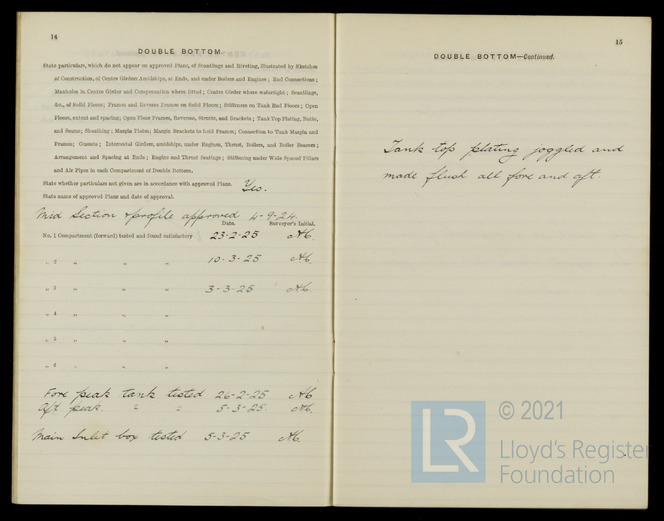 14
DOUBLE BOTTOM.
State particulars, which do not appear on approved Plans, of Scantlings and Riveting, illustrated by Sketches
of Construction, of Centre Girders Amidships, at Ends, and under Boilers and Engines; End Connections;
Manholes in Centre Girder and Compensation where fitted; Centre Girder where watertight; Scantlings,
&c., of Solid Floors; Frames and Reverse Frames on Solid Floors; Stiffeners on Tank End Floors; Open
Floors, extent and spacing; Open Floor Frames, Reverses, Struts, and Brackets; Tank Top Plating, Butts,
and Seams; Sheathing; Margin Plates; Margin Brackets to hold Frames; Connection to Tank Margin and
Frames; Gussets; Intercostal Girders, amidships, under Engines, Thrust, Boilers, and Boiler Bearers;
Arrangement and Spacing at Ends; Engine and Thrust Seatings; Stiffening under Wide Spaced Pillars
and Air Pipes in each Compartment of Double Bottom.
State whether particulars not given are in accordance with approved Plans. Yes.
State name of approved Plans and date of approval.
Mid Section & profile approved 4-9-24.
Date. Surveyor's Initial.
No. 1 Compartment (forward) tested and found satisfactory 23-2-25
„ 2 „ „ „ 10-3-25
„ 3 „ „ „ 3-3-25
„ 4 „ „ „
„ 5 „ „ „
„ 6 „ „ „
Fore peak tank tested 26-2-25
Aft peak " " 5-3-25
Main Inlet box tested 5-3-25
15
DOUBLE BOTTOM—Continued.
Tank top plating joggled and
made flush all fore and aft.
LR
© 2021
Lloyd's Register
Foundation